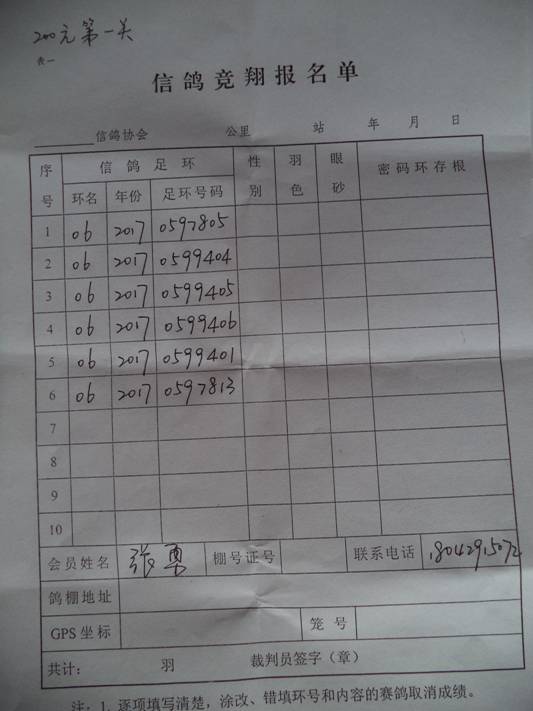 200元第一关
表一
信鸽竞翔报名单
信鸽协会 公里 站 年 月 日
序号 信鸽足环 性别 羽色 眼砂 密码环存根
环名 年份 足环号码
1 06 2017 0597805
2 06 2017 0599404
3 06 2017 0599405
4 06 2017 0599406
5 06 2017 0599401
6 06 2017 0597813
7
8
9
10
会员姓名 张勇 棚号证号 联系电话 18042915072
鸽棚地址
GPS坐标 笼号
共计: 羽 裁判员签字(章)
注:1.逐项填写清楚,涂改、错填环号和内容的赛鸽取消成绩。